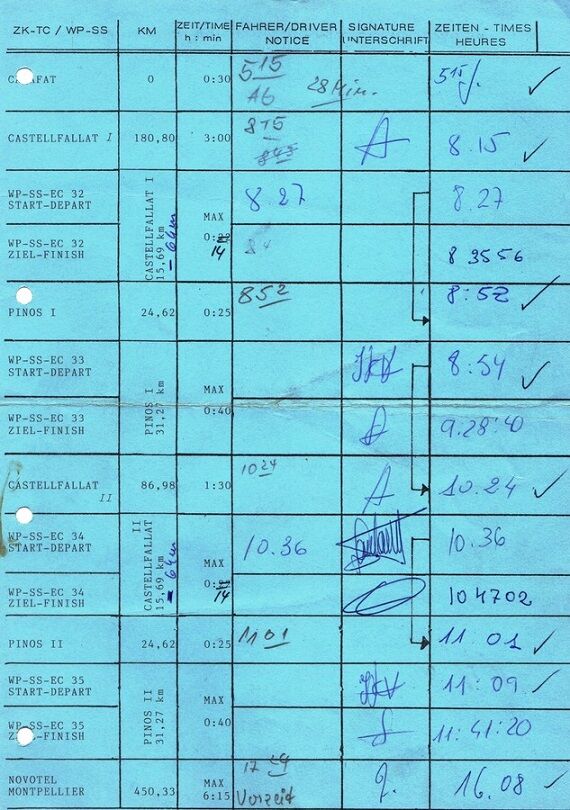 ZK-TC / WP-SS KM ZEIT/TIME FAHRER/DRIVER SIGNATURE ZEITEN - TIMES
h : min NOTICE UNTERSCHRIFT HEURES
0 0:30 515 515
A6 28 Min.
CASTELLFALLAT I 180,80 3:00 815 8.15
845
WP-SS-EC 32 8.27 8.27
START-DEPART
CASTELLFALLAT I
15,69 km
- 6 km
MAX
0:
14
WP-SS-EC 32 84 8 35 56
ZIEL-FINISH
PINOS I 24,62 0:25 852 8:52
WP-SS-EC 33 8:54
START-DEPART
PINOS I
31,27 km
MAX
0:40
WP-SS-EC 33 9.28:40
ZIEL-FINISH
CASTELLFALLAT 86,98 1:30 1024 10.24
II
WP-SS-EC 34 10.36 10.36
START-DEPART
CASTELLFALLAT II
15,69 km
- 6 km
MAX
0:
14
WP-SS-EC 34 10 47 02
ZIEL-FINISH
PINOS II 24,62 0:25 1101 11:01
WP-SS-EC 35 11:09
START-DEPART
PINOS II
31,27 km
MAX
0:40
WP-SS-EC 35 11:41:20
ZIEL-FINISH
NOVOTEL MAX 17 16.08
MONTPELLIER 450,33 6:15 Vorzeit